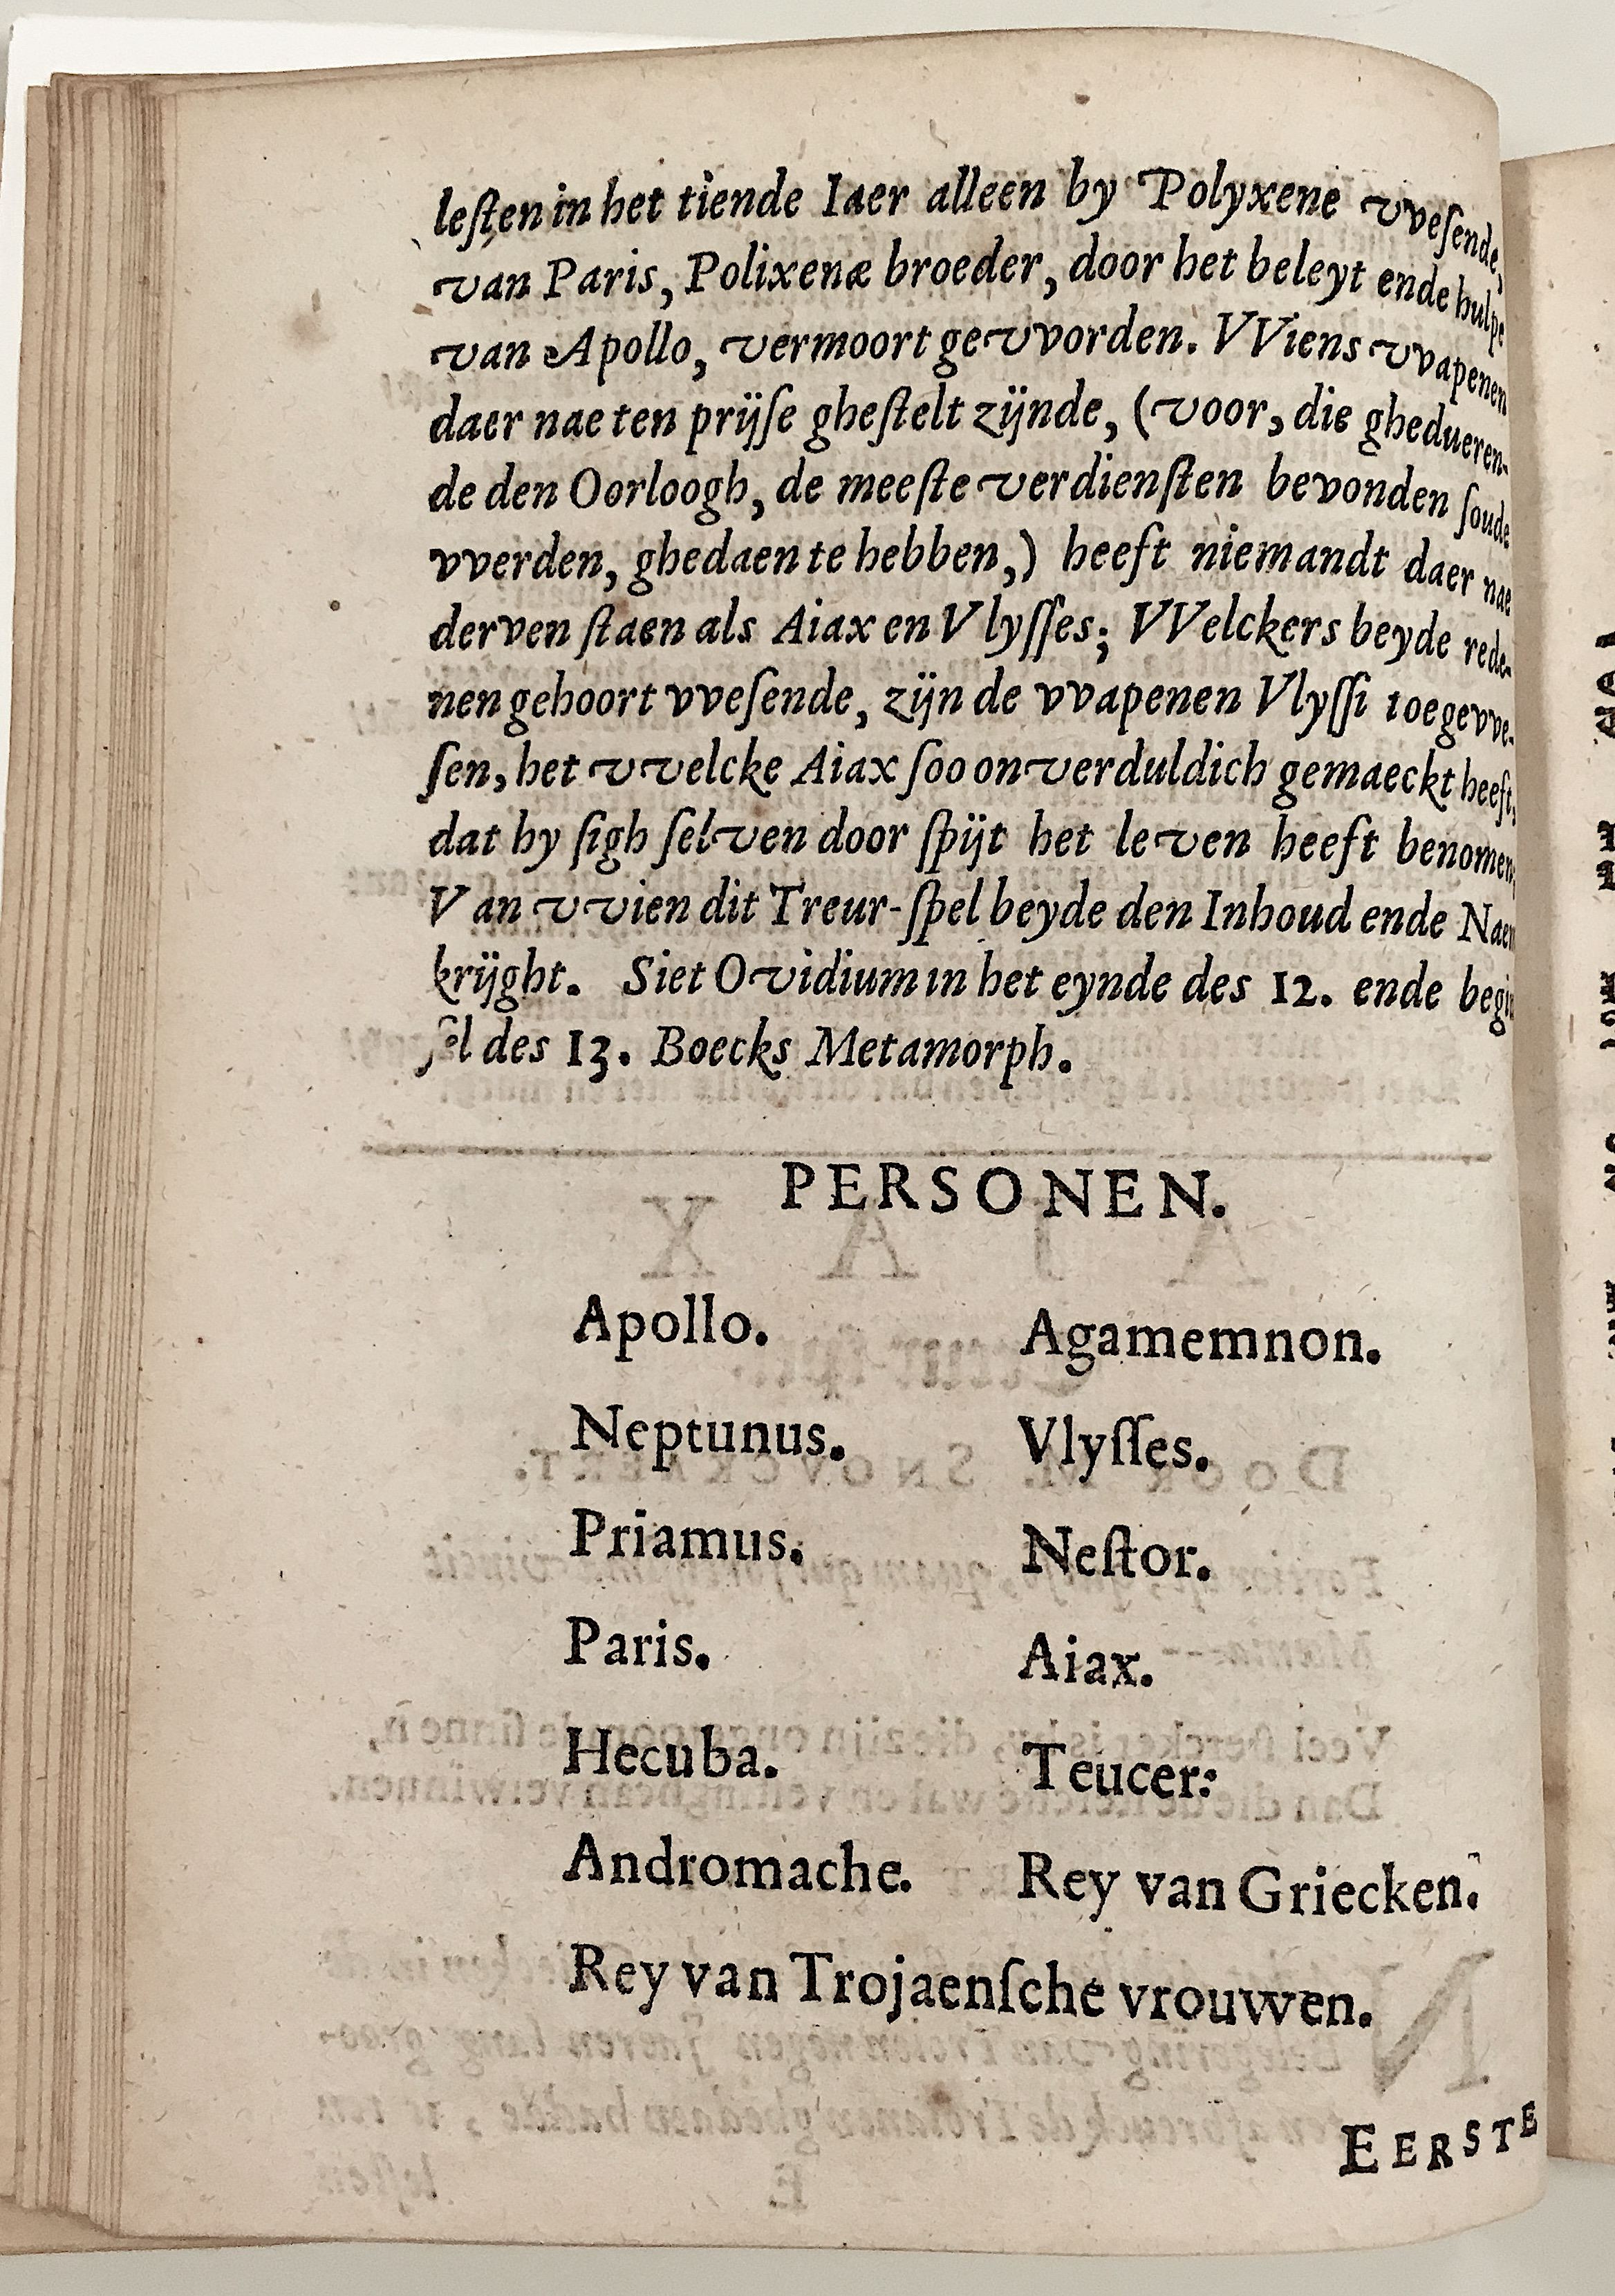 leſten in het tiende Iaer alleen by Polyxene vveſende,
van Paris, Polixenæ broeder, door het beleyt ende hulpe
van Apollo, vermoort gevvorden. VViens vvapenen
daer nae ten prijſe gheſtelt zijnde, (voor, die ghedueren-
de den Oorloogh, de meeſte verdienſten bevonden ſoude
vverden, ghedaen te hebben,) heeft niemandt daer nae
derven ſtaen als Aiax en Vlyſſes; VVelckers beyde rede-
nen gehoort vveſende, zijn de vvapenen Vlyſſi toegevve-
ſen, het vvelcke Aiax ſoo onverduldich gemaeckt heeft,
dat hy ſigh ſelven door ſpijt het leven heeft benomen;
Van vvien dit Treur-ſpel beyde den Inhoud ende Naem
krijght. Siet Ovidium in het eynde des 12. ende begin
ſel des 13. Boecks Metamorph.
PERSONEN.
Apollo. Agamemnon.
Neptunus. Vlyſſes.
Priamus. Neſtor.
Paris. Aiax.
Hecuba. Teucer:
Andromache. Rey van Griecken.
Rey van Trojaenſche vrouwen.
EERSTE